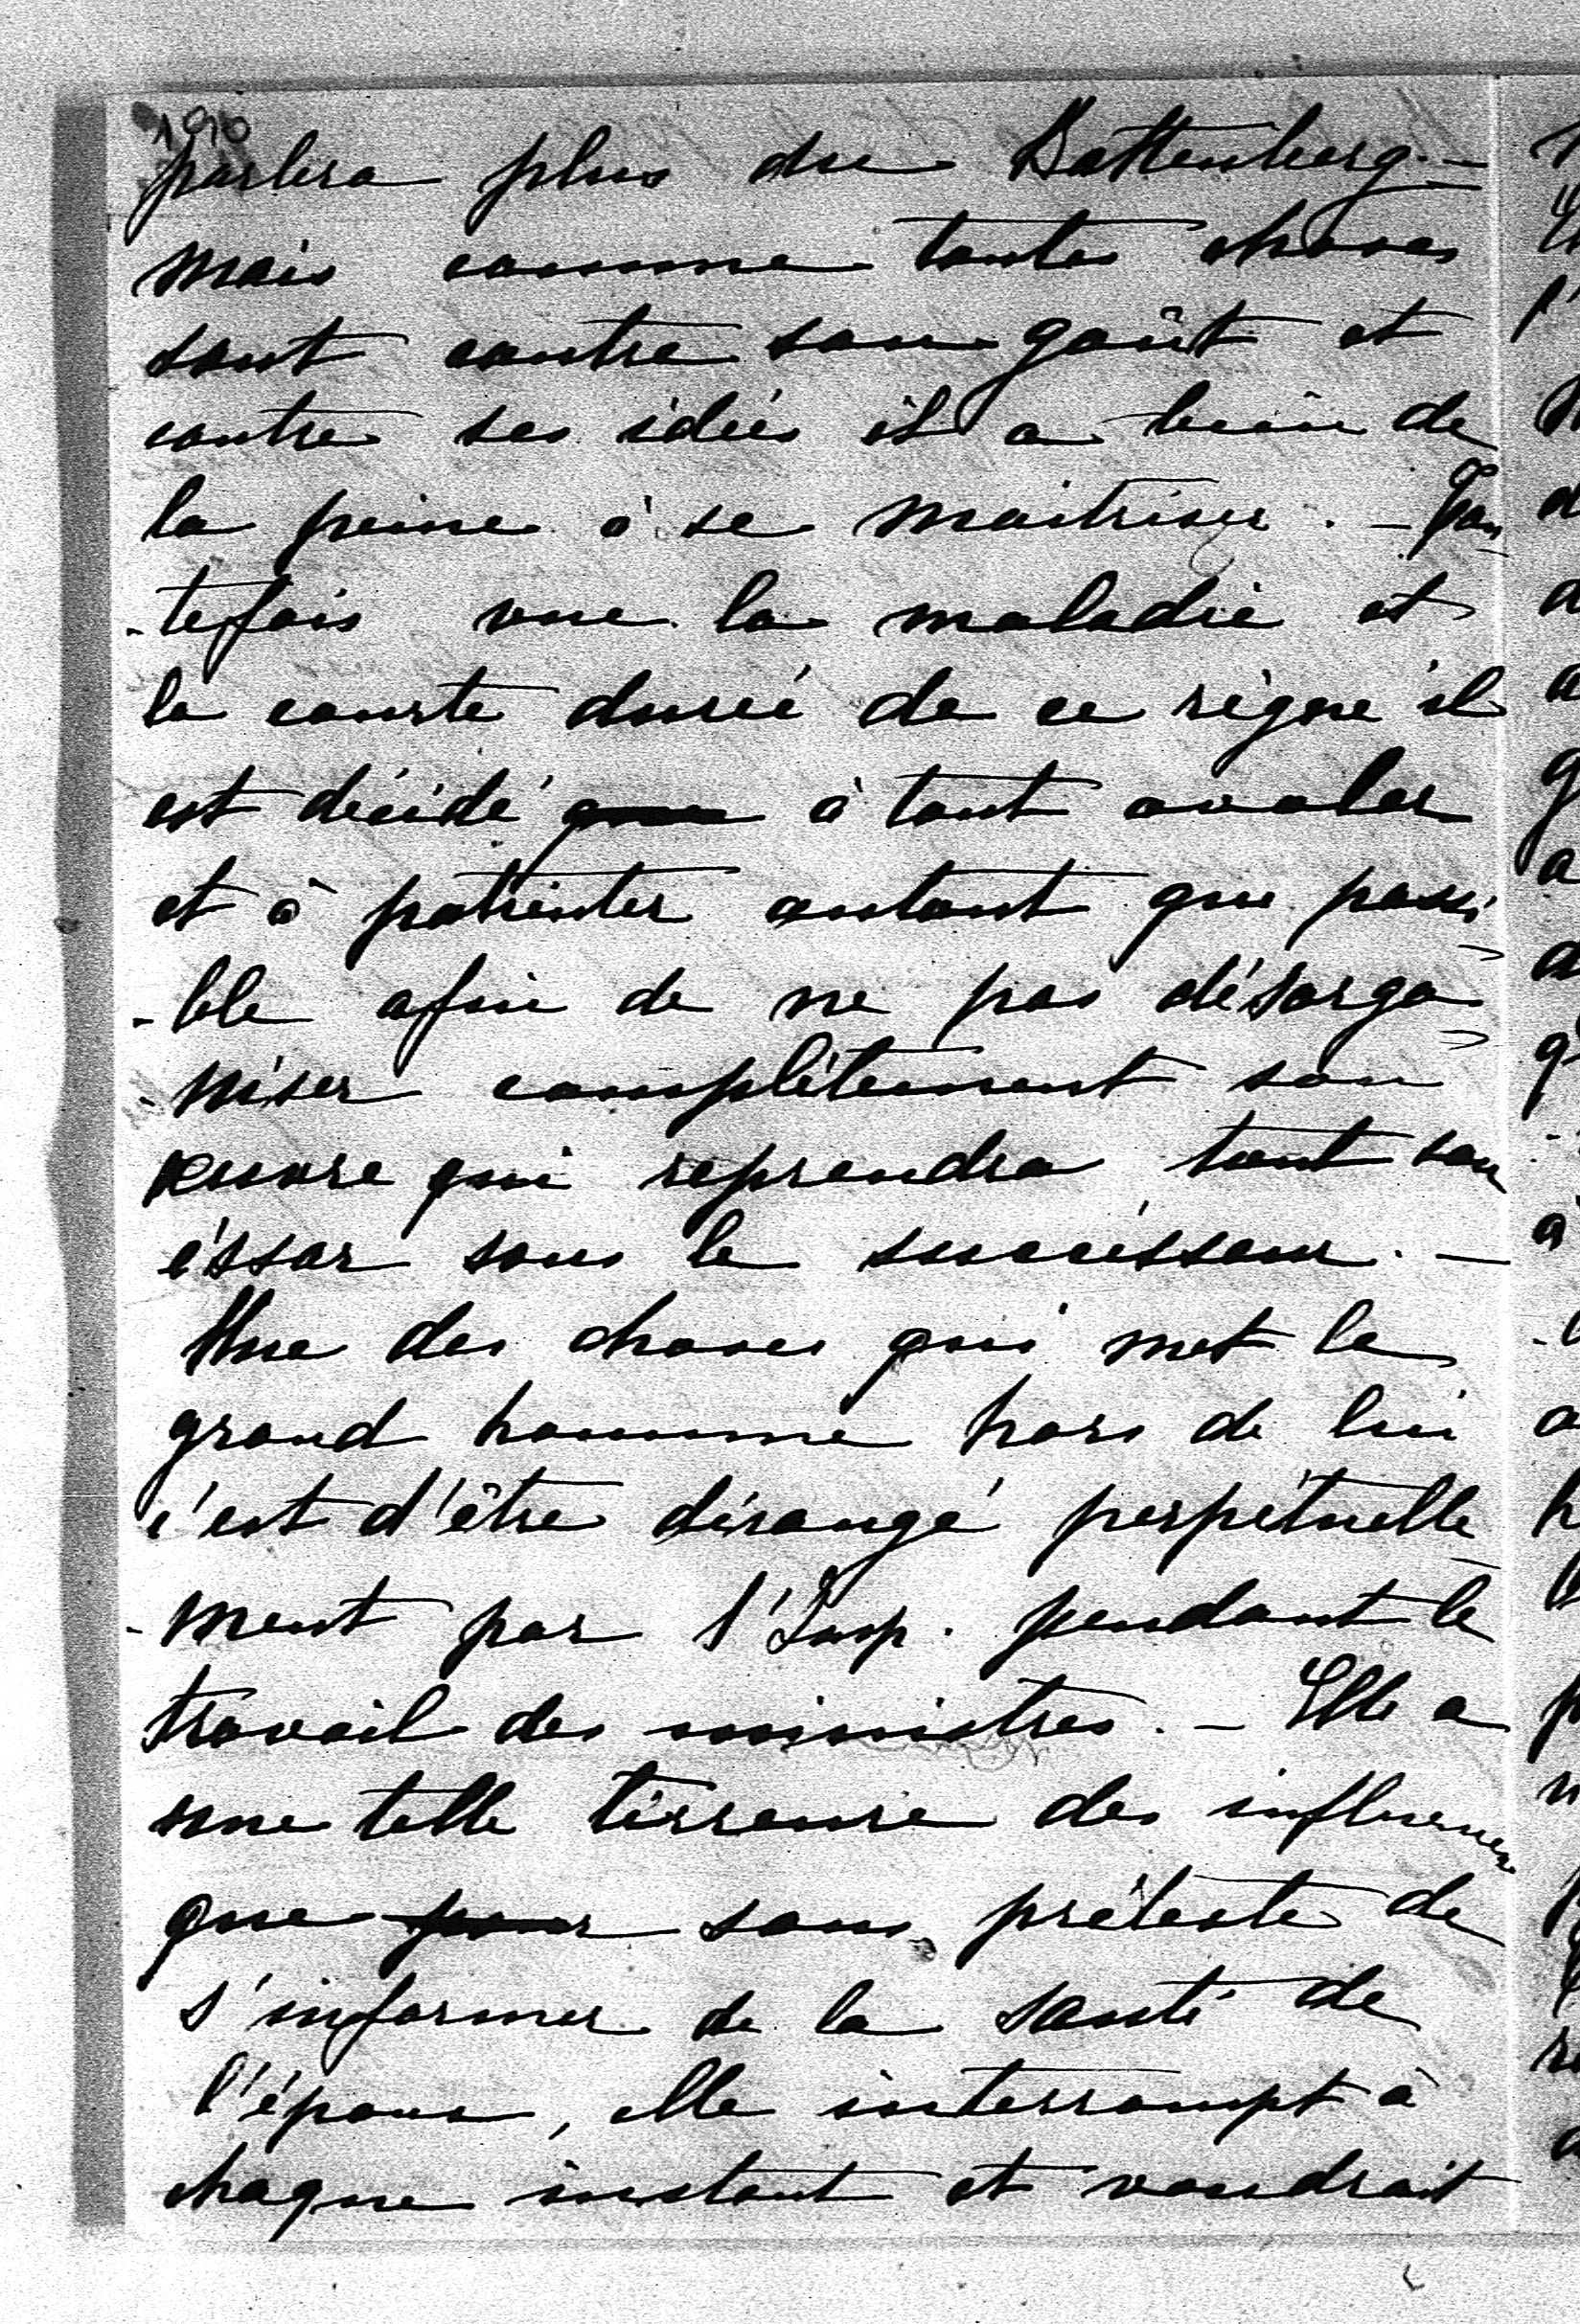 190
parlera plus du Battenberg. -
mais comme toutes choses
sont contre son goût et
contre ses idées il a bien de
la peine à se maitriser. - Tou
-tefois vue la maladie et
la courte durée de ce règne il
est décidé à tout avaler
et à patienter autant que possi
-ble afin de ne pas désorga
-niser complètement son
œuvre qui reprendra tout son
éssor sous le successeur. -
Une des choses qui met le
grand homme hors de lui
c'est d'être dérangé perpétuelle
-ment par l'Imp. pendant le
travail des ministres. - Elle a
une telle terreure des influences
que pour sous prétexte de
s'informer de la santé de
l'époux, elle interrompt à
chaque instant et voudrait